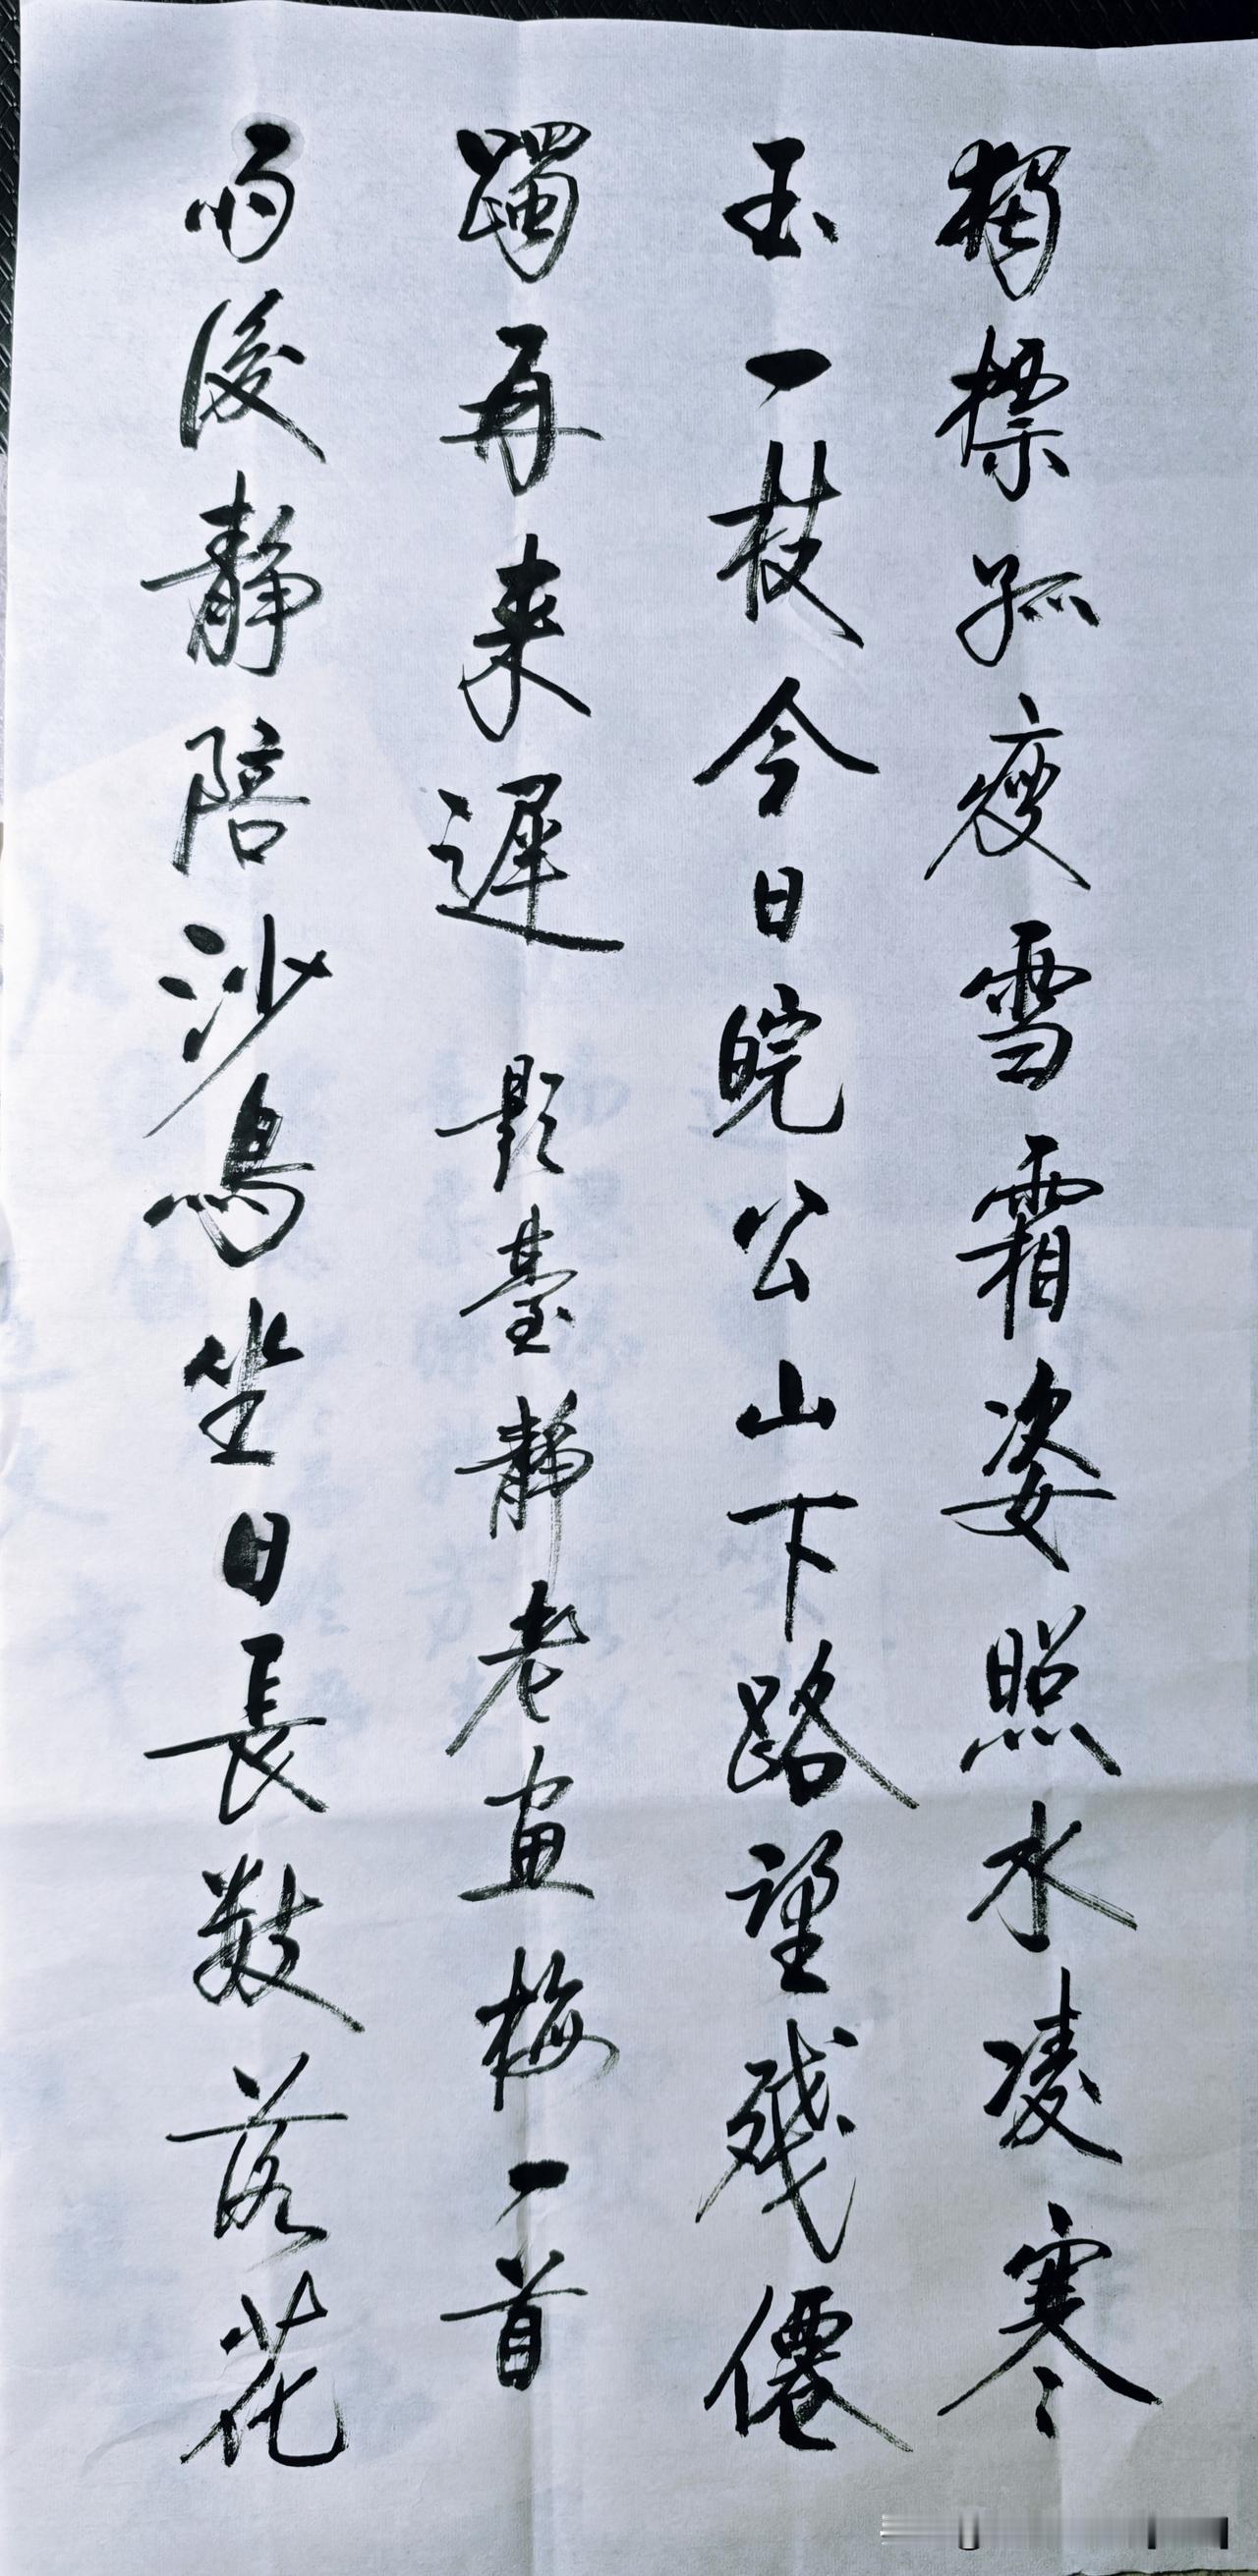 獨標孤瘦雪霜姿照水凌寒
玉一枝今日皖公山下路望殘僊
躅再来遲 題臺靜老画梅一首
雨後靜陪沙鳥坐日長數落花